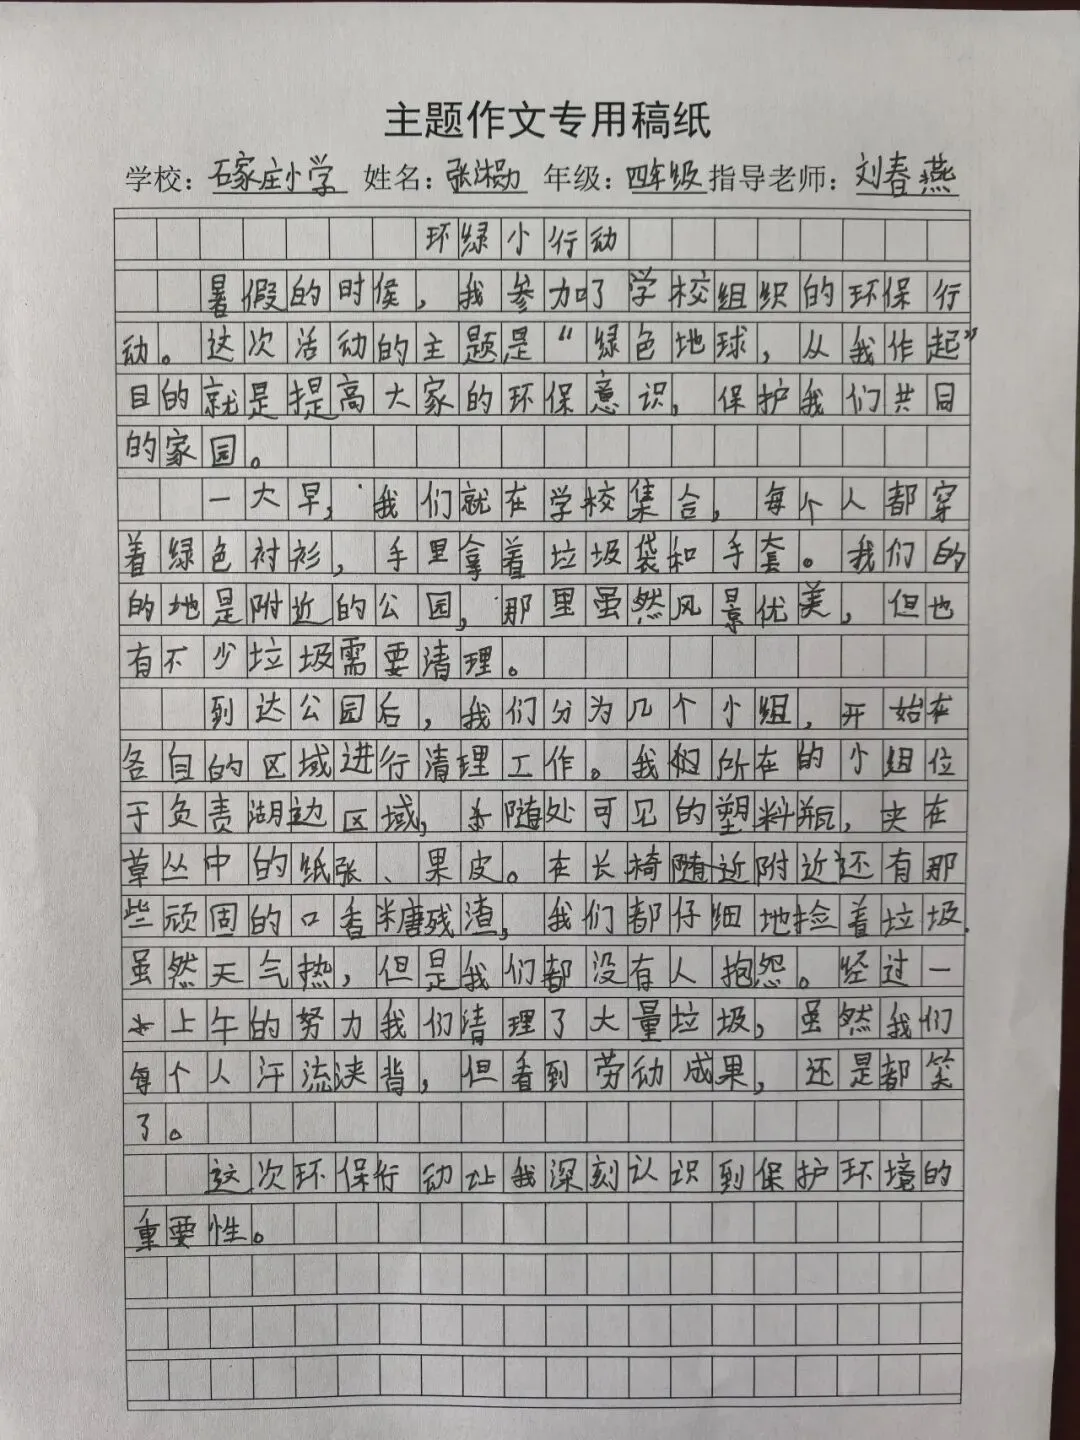 主题作文专用稿纸
学校：石家庄小学 姓名：张湘勋 年级：四年级 指导老师：刘春燕
环绿小行动
暑假的时候，我参加了学校组织的环保行
动。这次活动的主题是“绿色地球，从我作起”
目的就是提高大家的环保意识，保护我们共同
的家园。
一大早，我们就在学校集合，每个人都穿
着绿色衬衫，手里拿着垃圾袋和手套。我们的
的地是附近的公园，那里虽然风景优美，但也
有不少垃圾需要清理。
到达公园后，我们分为几个小组，开始在
各自的区域进行清理工作。我所在的小组位
于负责湖边区域，随处可见的塑料瓶，夹在
草丛中的纸张、果皮。在长椅附近还有那
些顽固的口香糖残渣，我们都仔细地捡着垃圾.
虽然天气热，但是我们都没有人抱怨。经过一
上午的努力我们清理了大量垃圾，虽然我们
每个人汗流浃背，但看到劳动成果，还是都笑
了。
这次环保行动让我深刻认识到保护环境的
重要性。